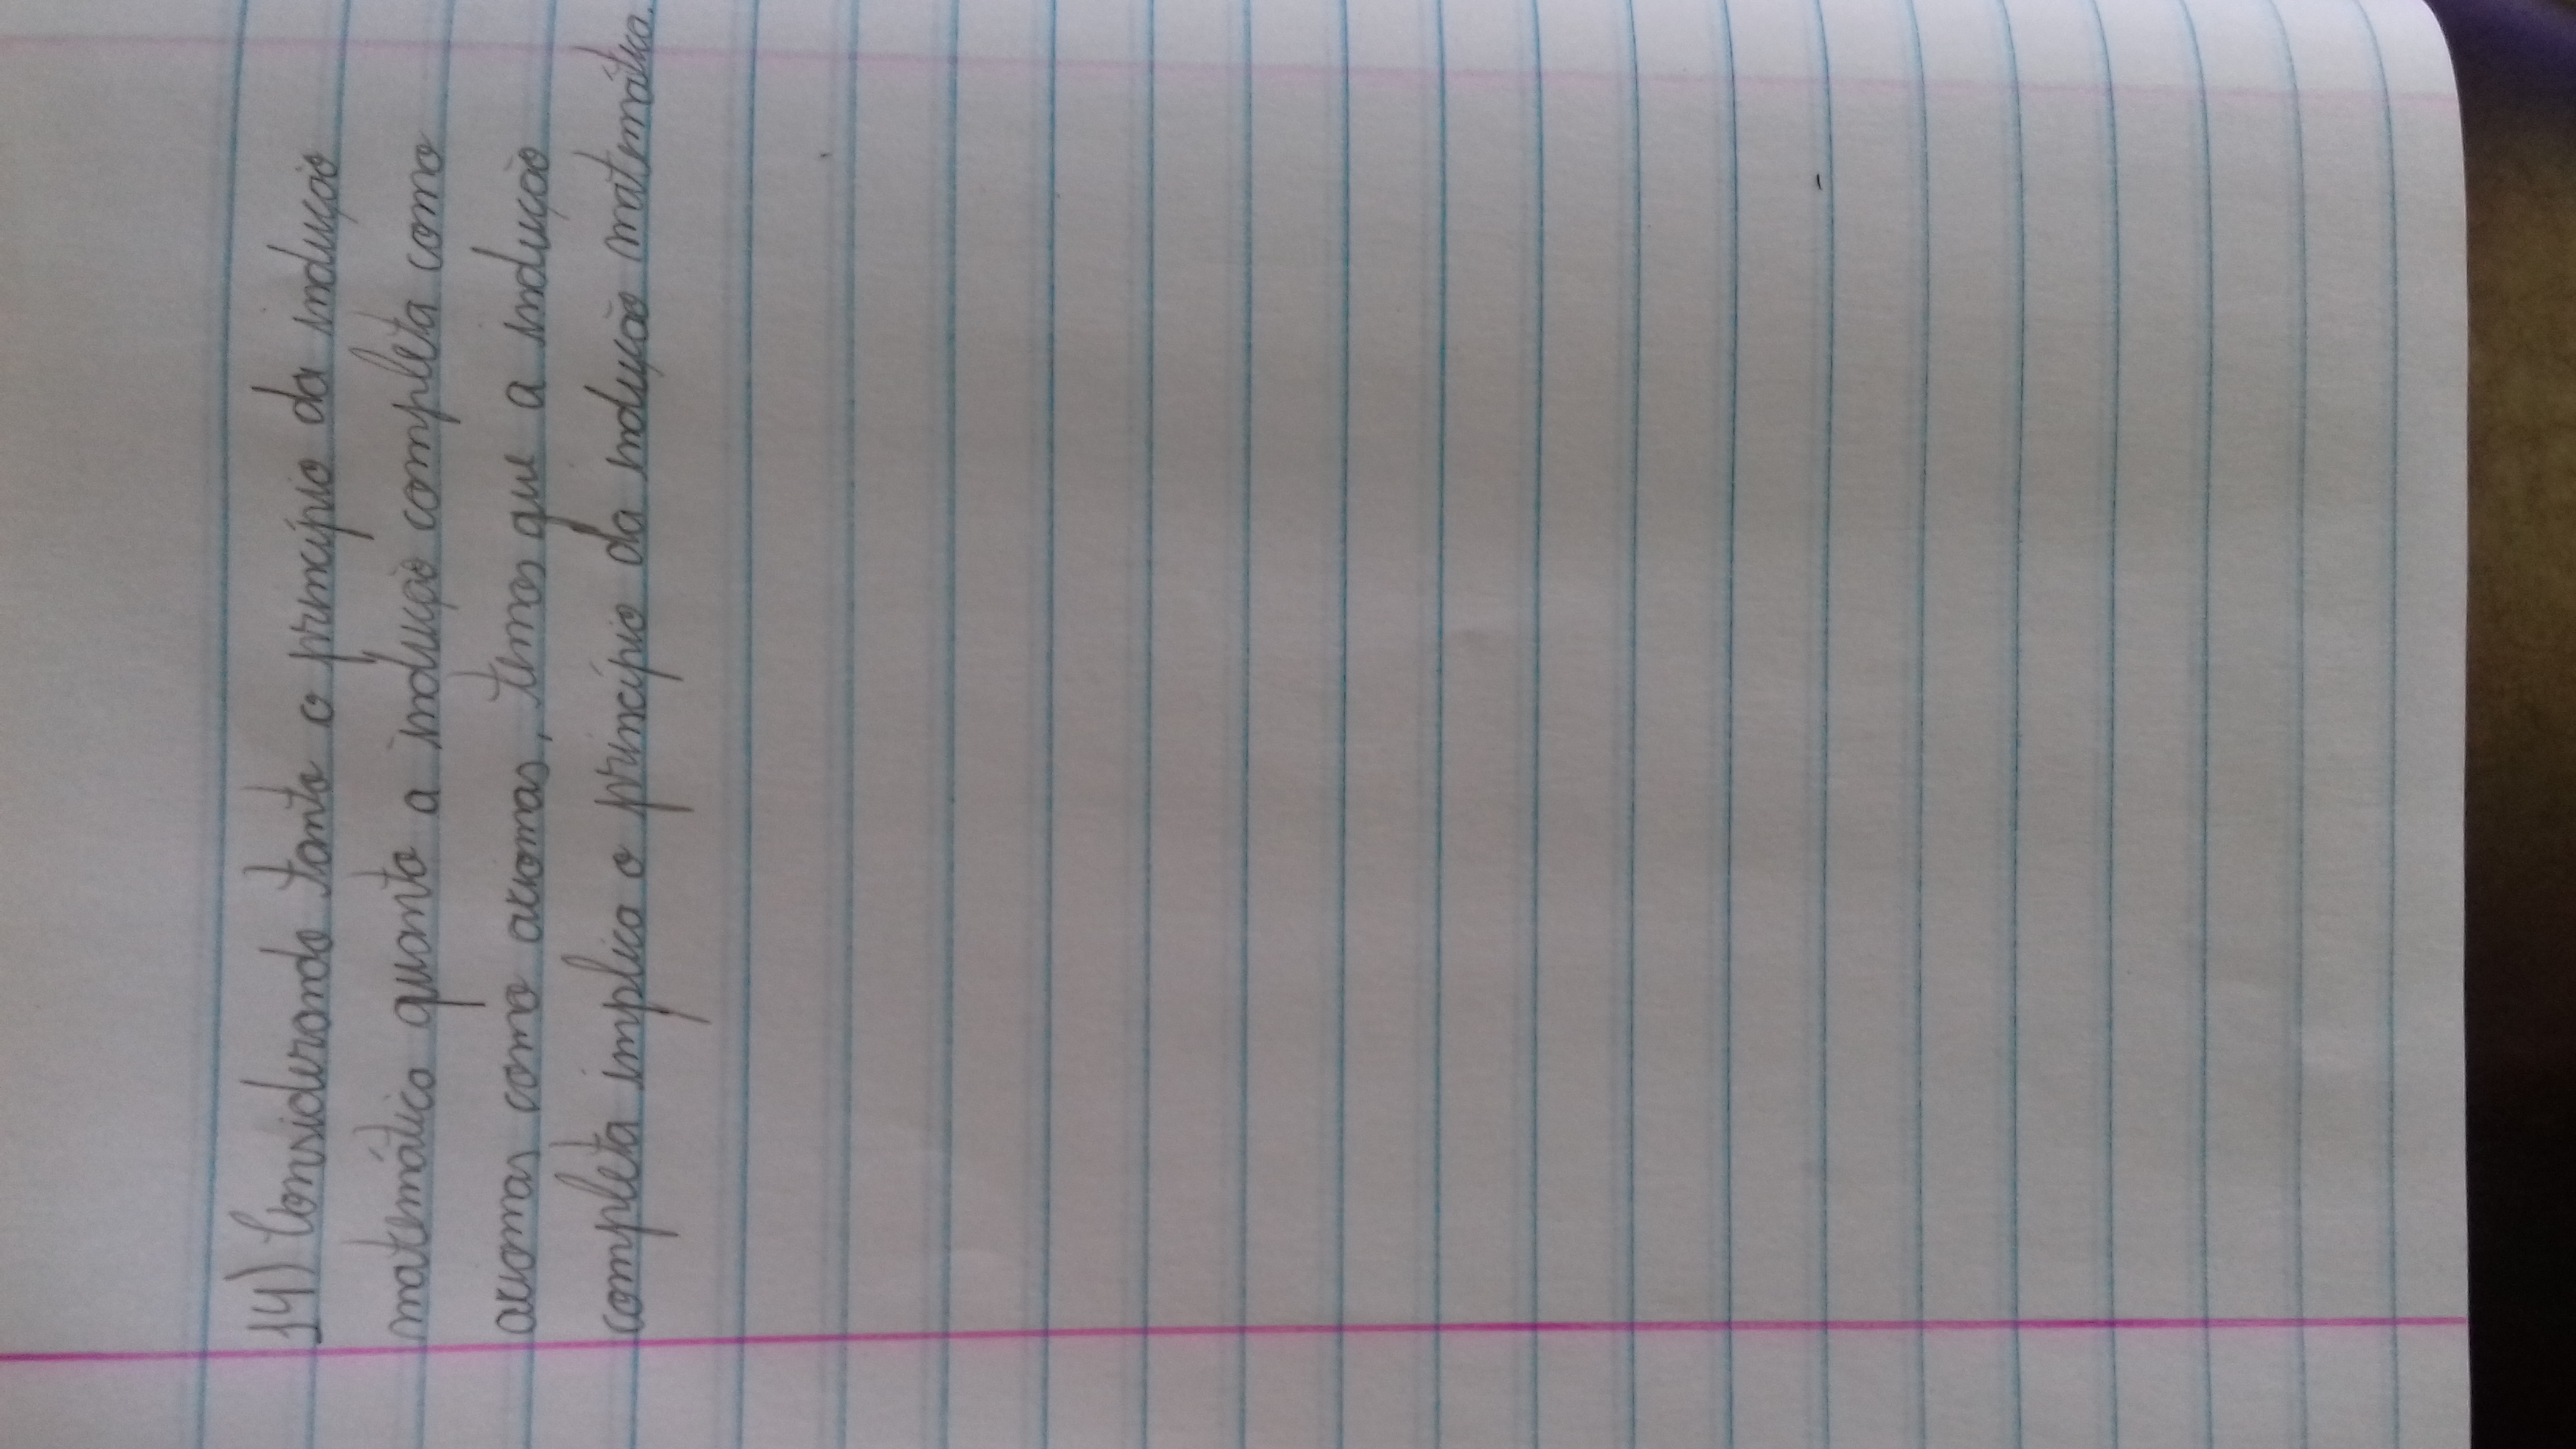 14) Considerando tanto o princípio da indução
matemática quanto a indução completa como
axiomas como axiomas, temos que a indução
completa implica o princípio da indução matemática.